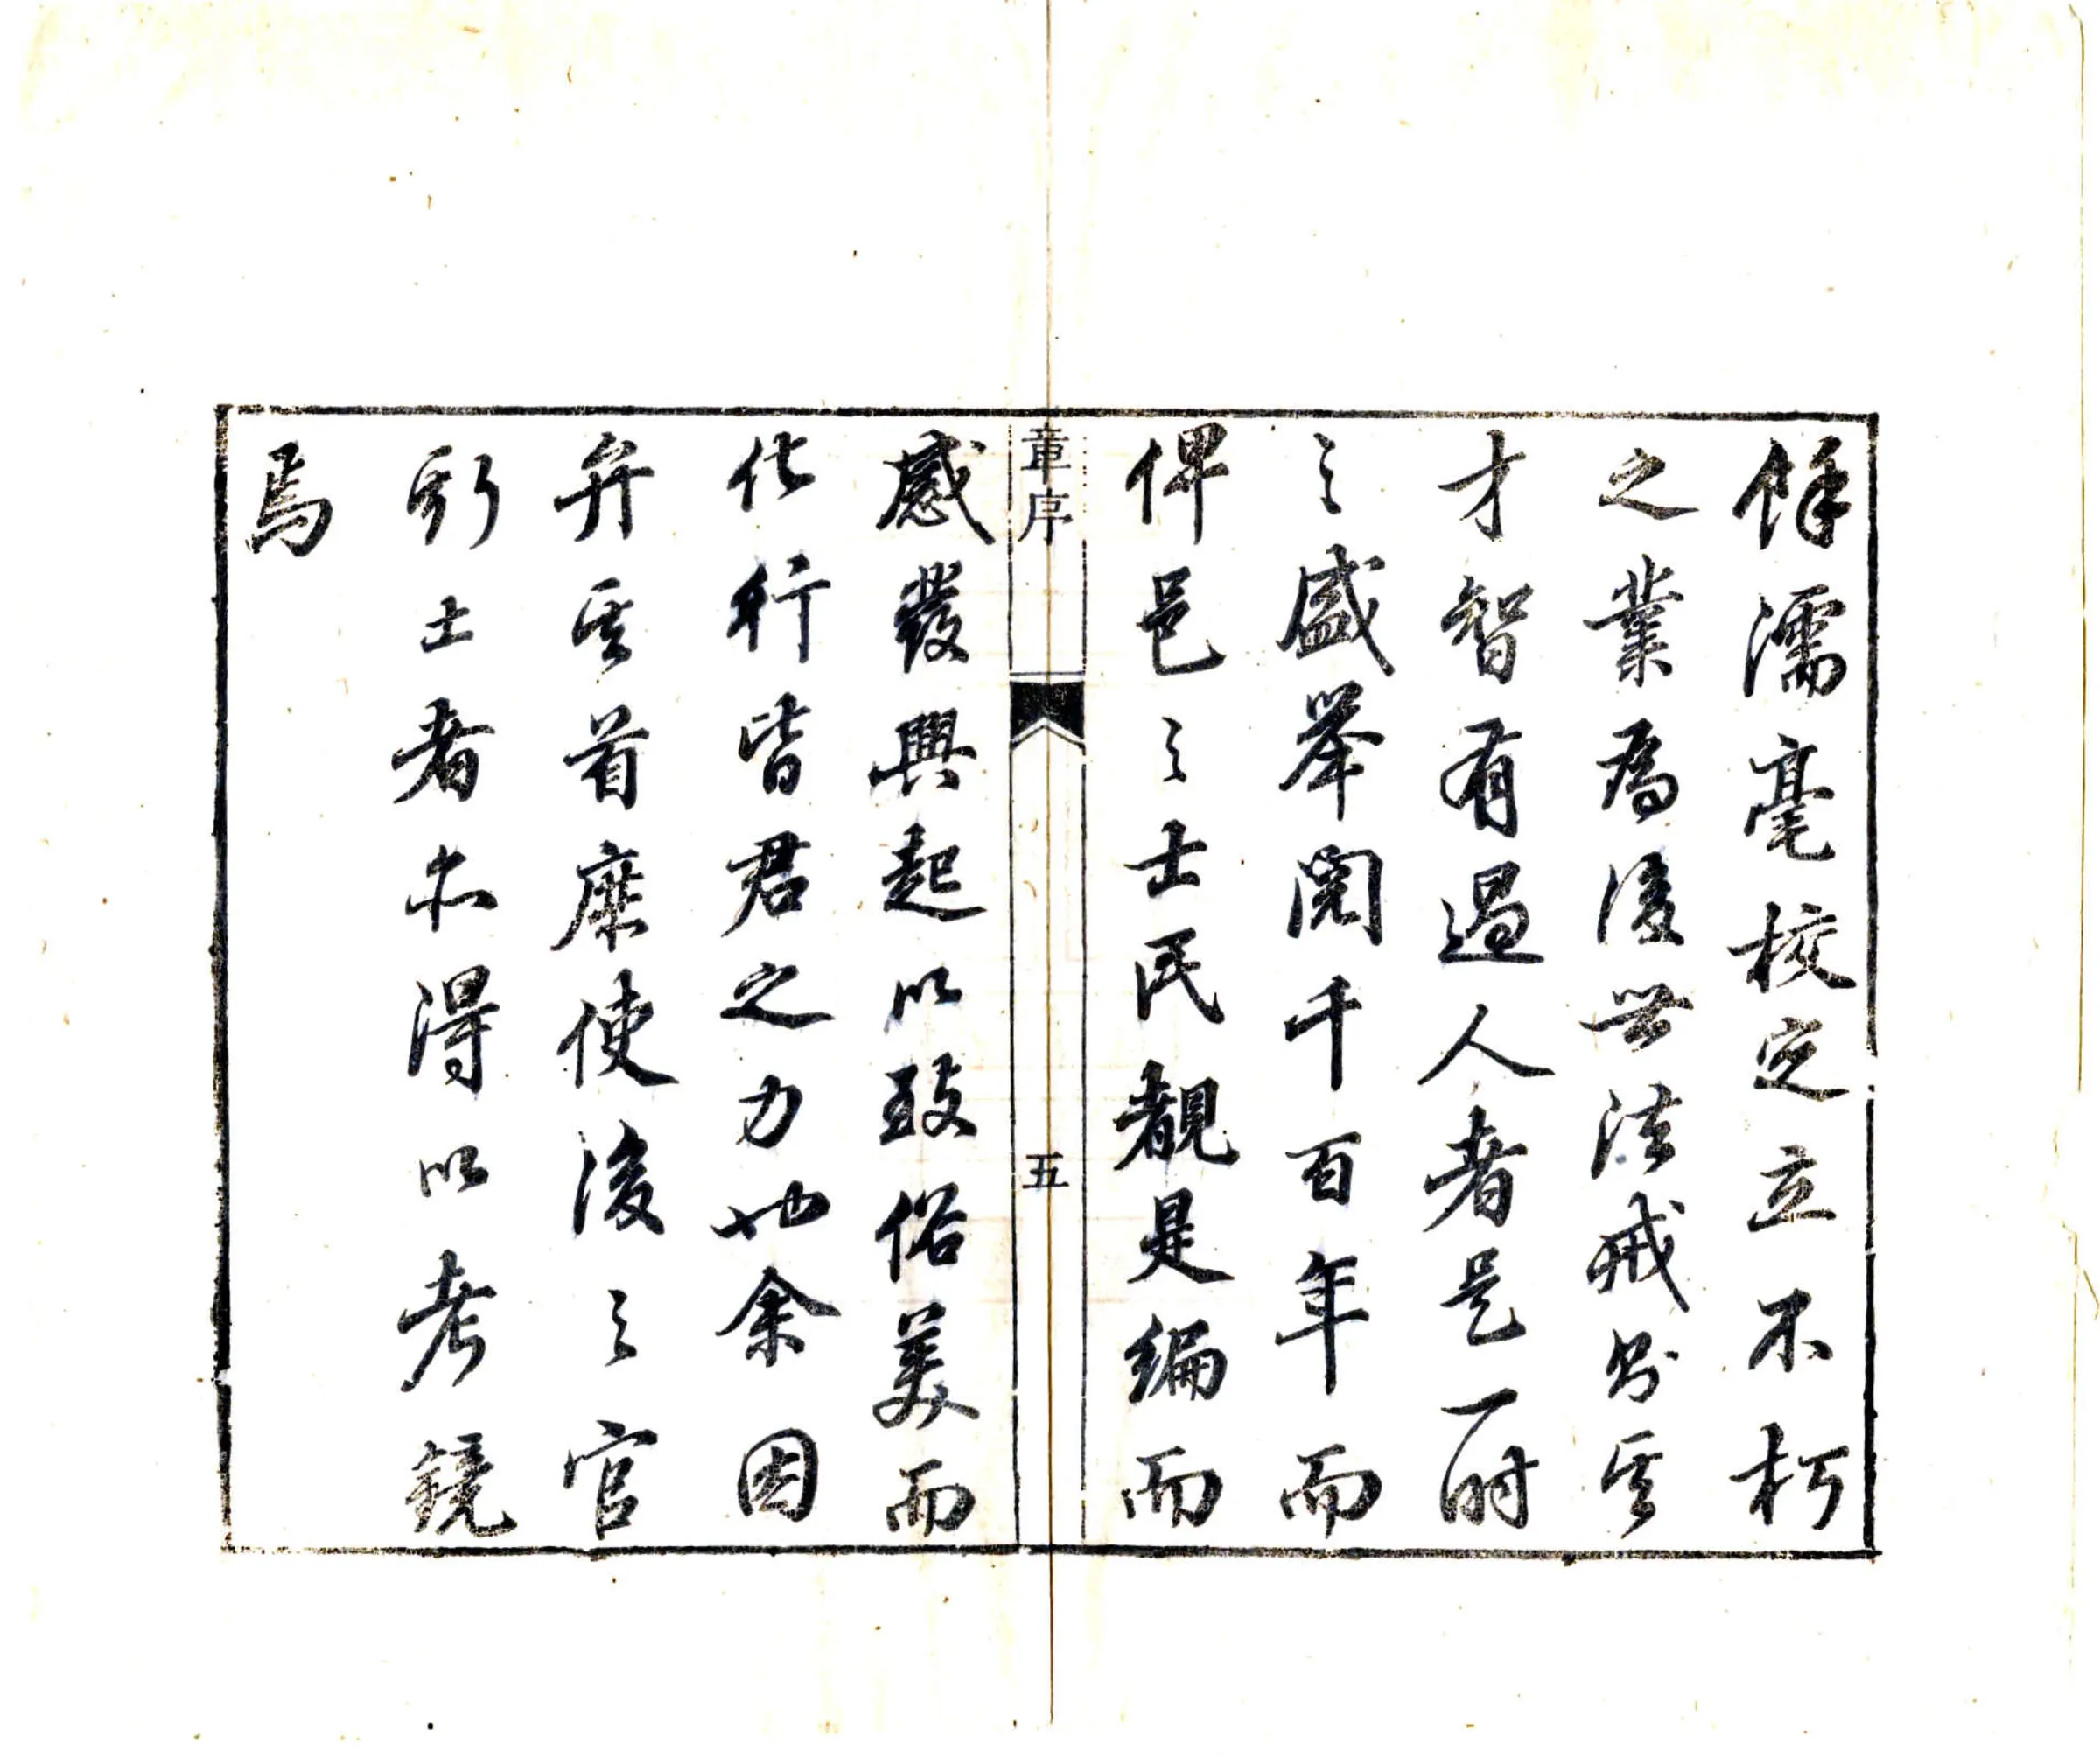 餘濡毫校定立不朽
之業爲後世法戒則其
才智有過人者是一時
之盛舉閱千百年而
俾邑之士民覩是編而
章序
五
感發興起以致俗美而
化行皆君之力也余因
弁其首庶使後之官
斯土者亦得以考鏡
焉